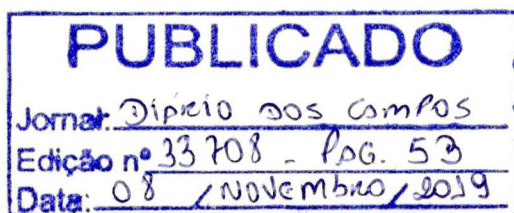 PUBLICADO
Jornal: DIÁRIO DOS CAMPOS
Edição nº 33708 - PAG. 53
Data: 08 / NOVEMBRO / 2019